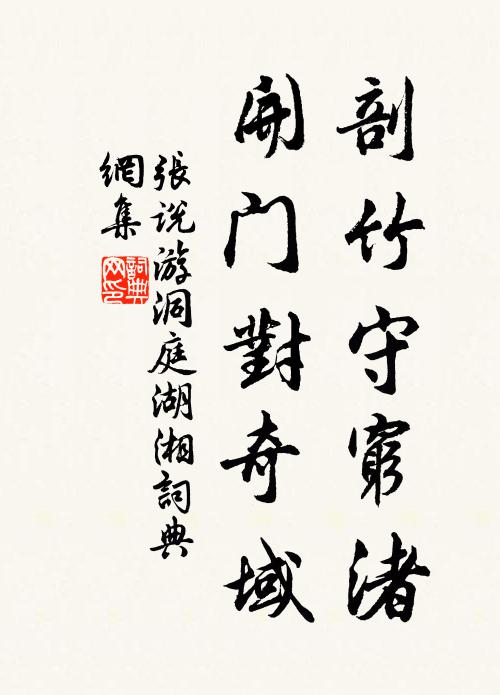 剖竹守窮渚
開門對奇域
張說游洞庭湖湘詞典
網集
詞典
网印